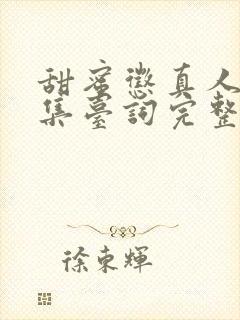 甜蜜懲真人
集臺詞完整
徐東輝